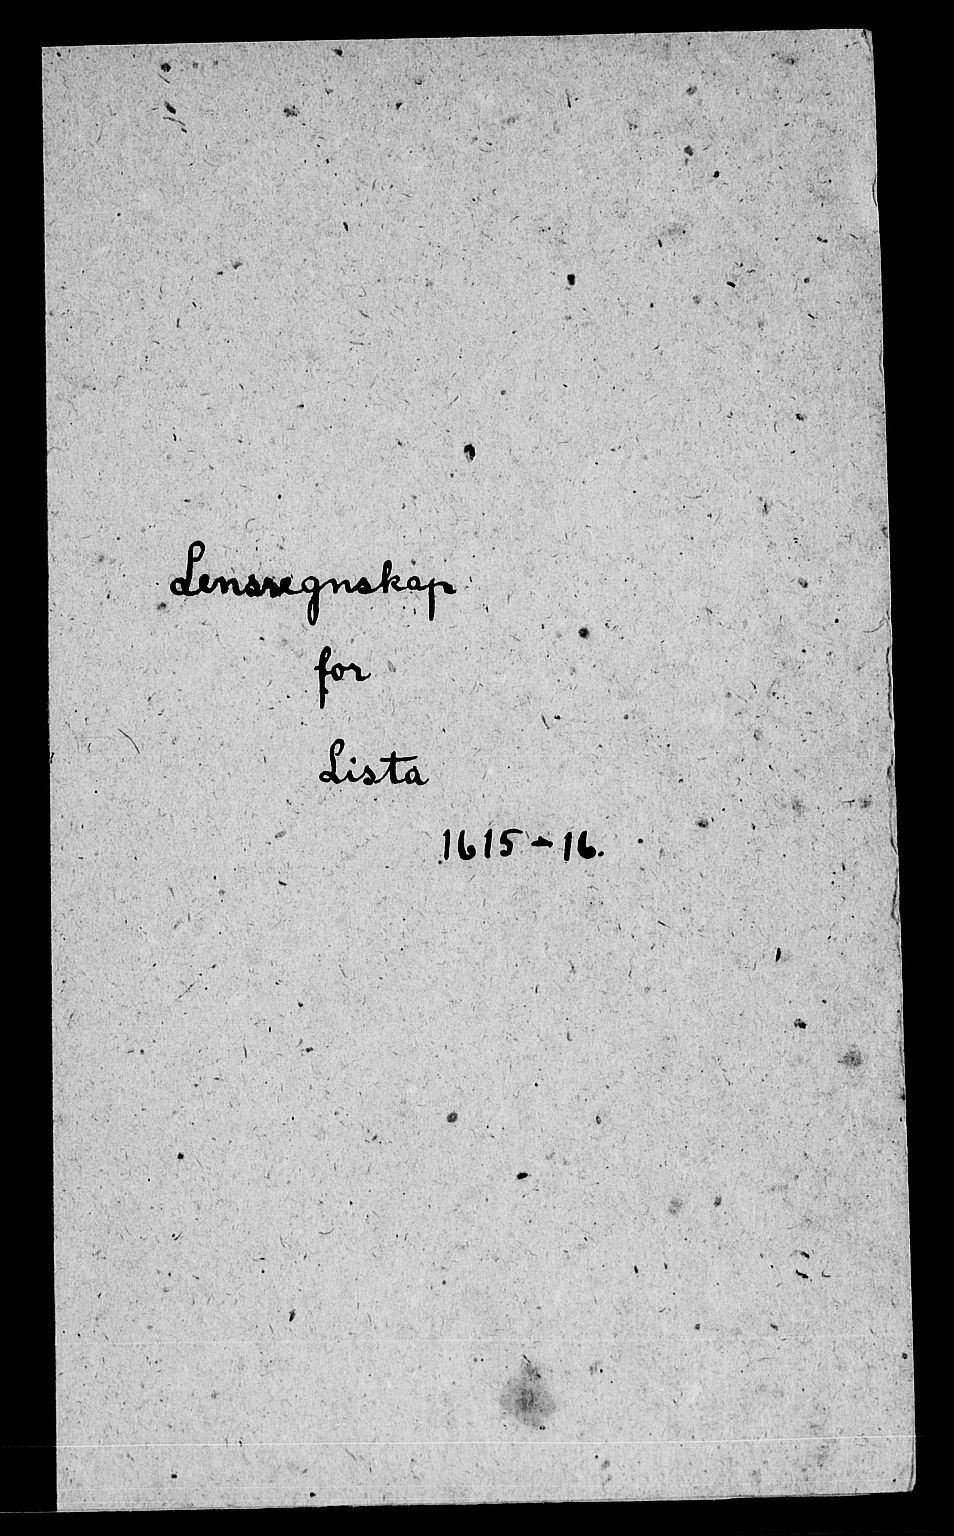 Lensregnskap
for
Lista
1615-16.